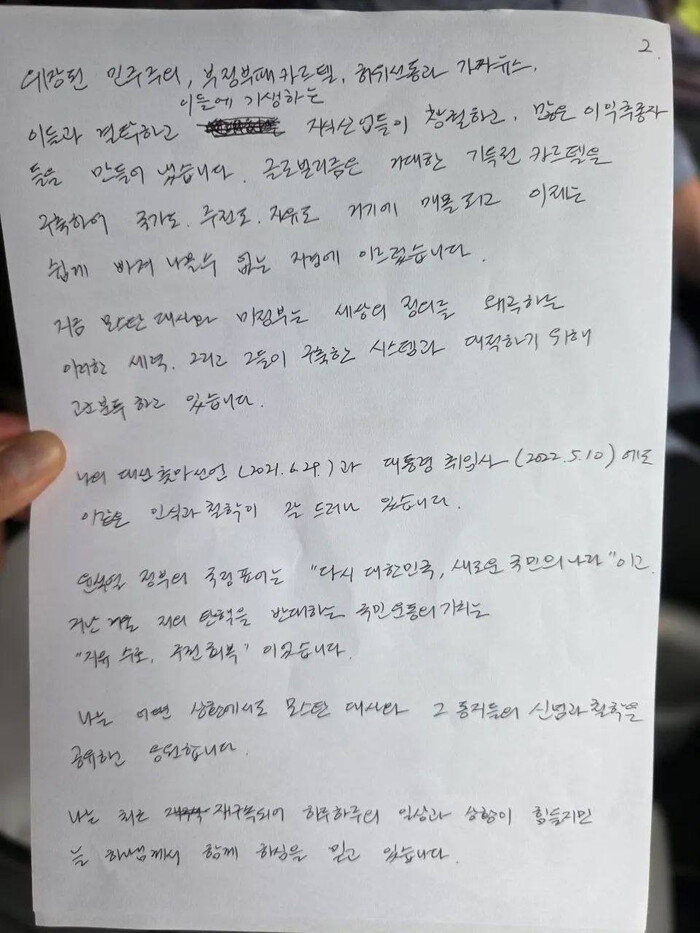 2.
위장된 민주주의, 부정부패 카르텔, 허위선동과 가짜뉴스,
이들에 기생하는
이들과 결탁하고 지식산업들이 창궐하고, 많은 이익추종자
들을 만들어 냈습니다. 글로벌리즘은 거대한 기득권 카르텔을
구축하여 국가도, 주권도, 자유도 거기에 매몰되고 이제는
쉽게 빠져 나올수 없는 지경에 이르렀습니다.
지금 모스탄 대사와 미정부는 세상의 정의를 왜곡하는
이러한 세력, 그리고 그들이 구축한 시스템과 대적하기 위해
고군분투 하고 있습니다.
나의 대선 출마선언 (2021.6.29.)과 대통령 취임사 (2022.5.10)에도
이같은 인식과 철학이 잘 드러나 있습니다.
윤석열 정부의 국정 표어는 "다시 대한민국, 새로운 국민의 나라"이고,
지난 겨울 저의 탄핵을 반대하는 국민운동의 기치는
"자유 수호, 주권 회복" 이었습니다.
나는 어떤 상황에서도 모스탄 대사와 그 동지들의 신념과 철학을
공유하고 응원합니다.
나는 최근 재구속되어 하루하루의 일상과 상황이 힘들지만
늘 하나님께서 함께 하심을 믿고 있습니다.